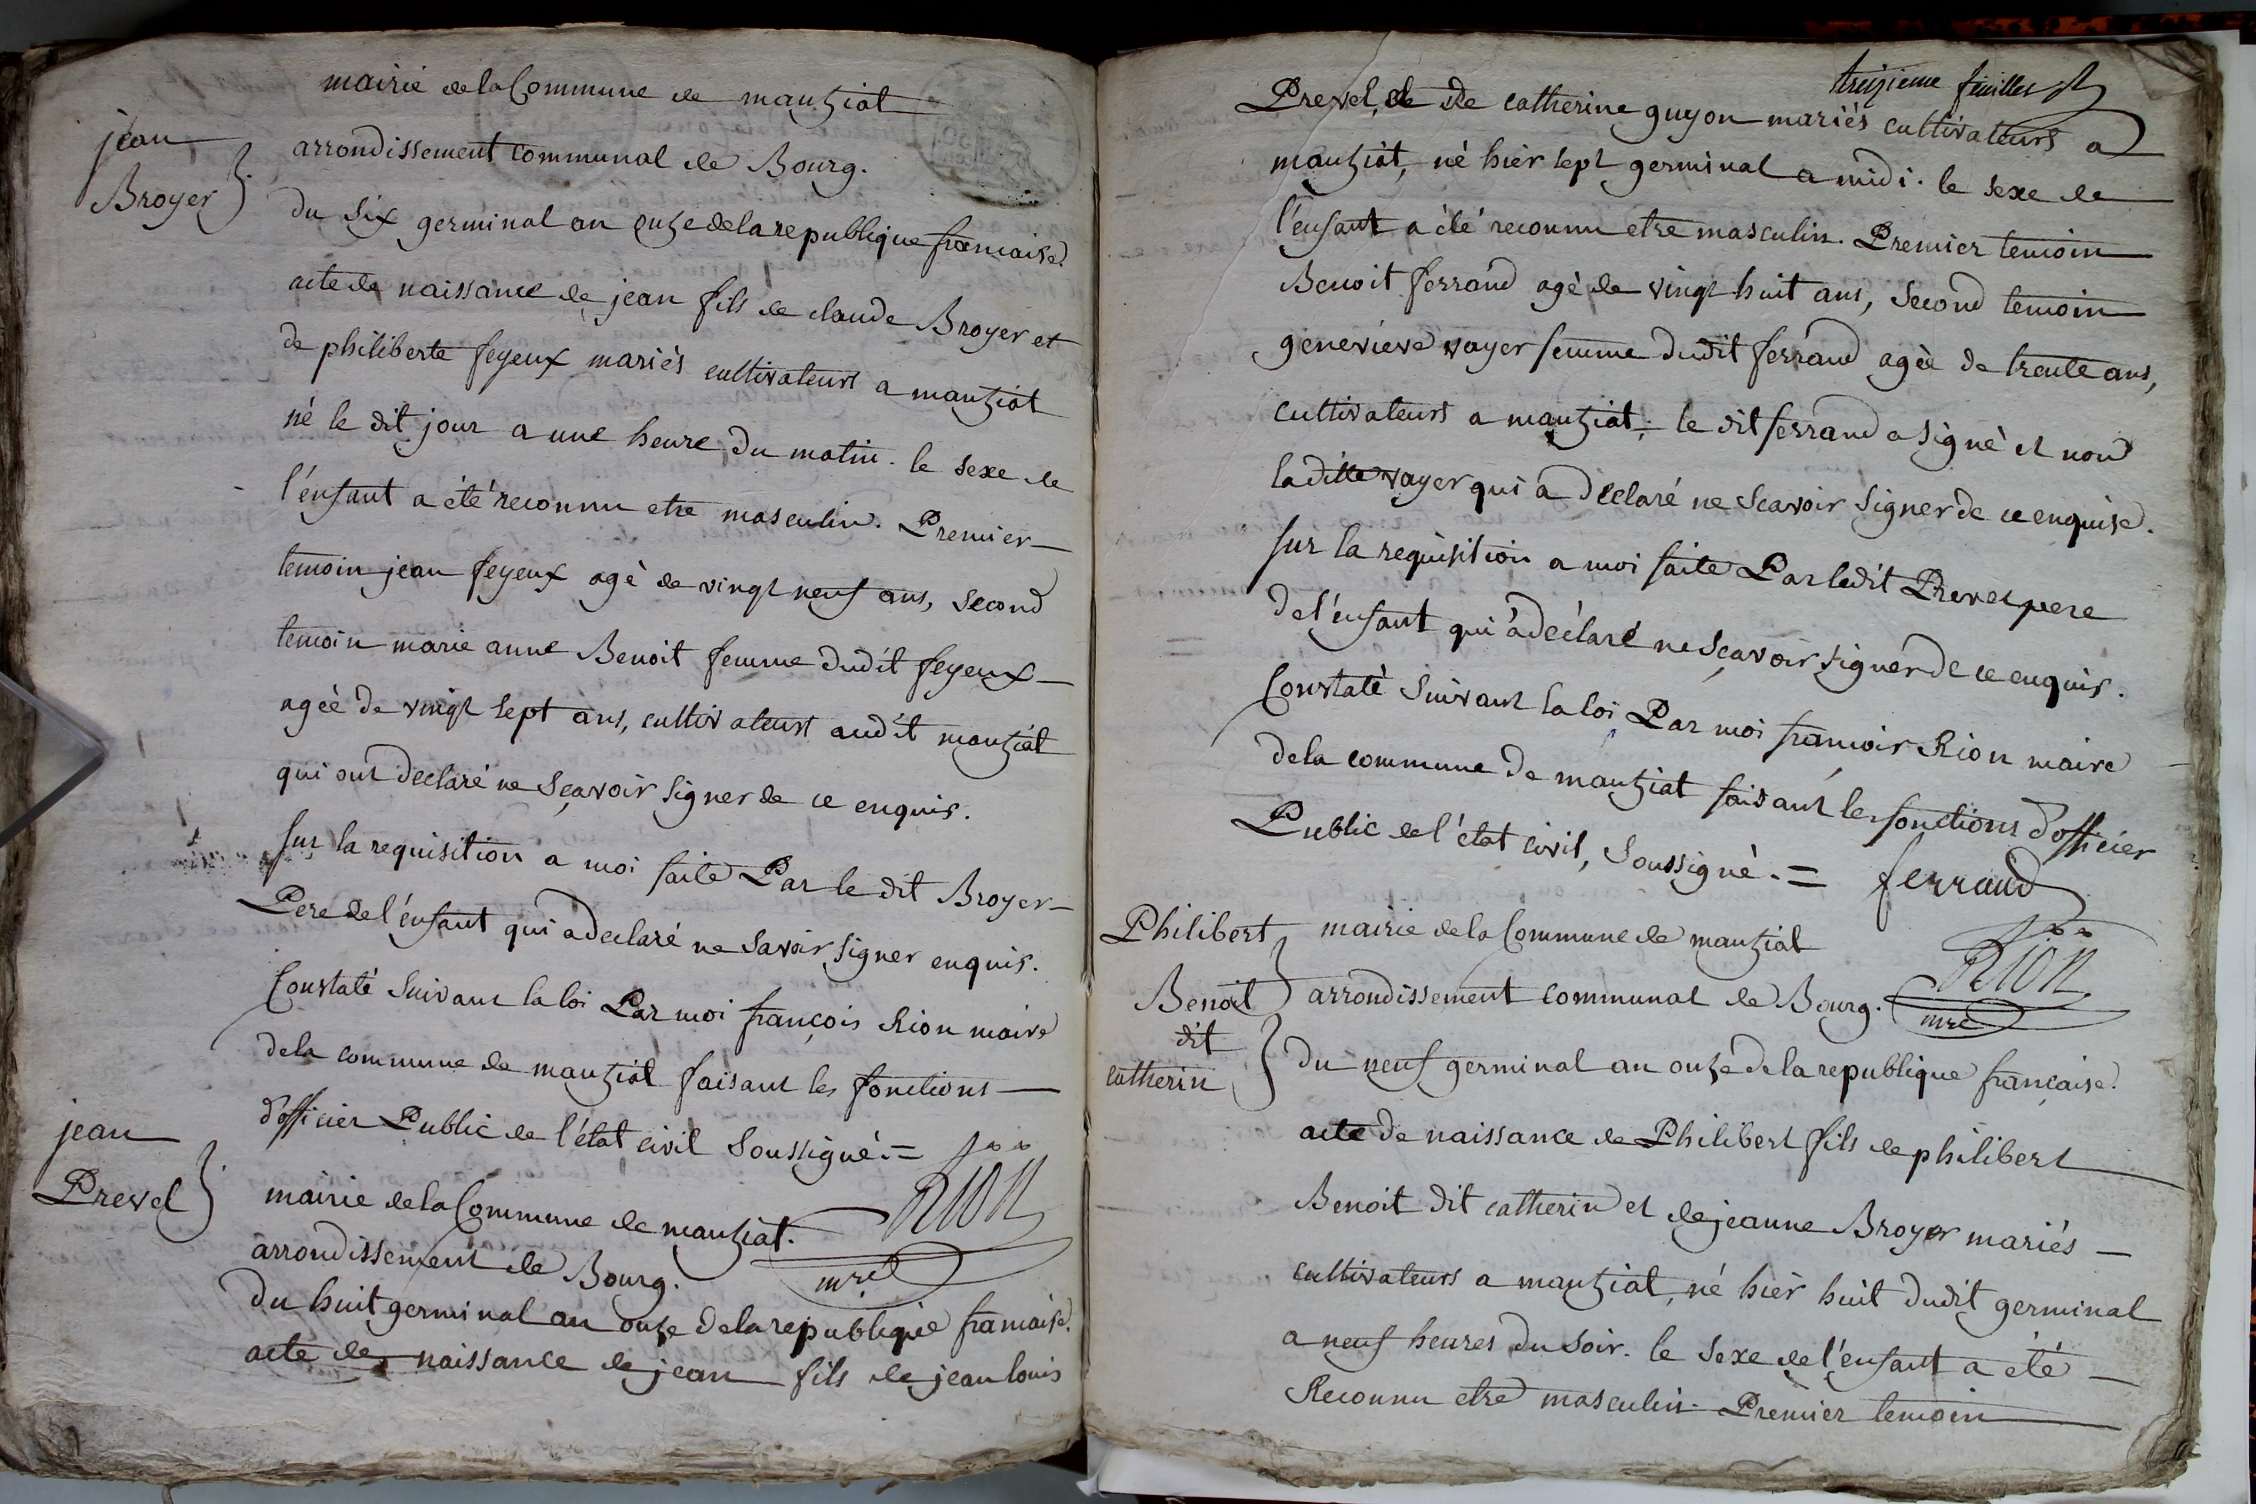 mairie de la Commune de mantziat
jean
Broyer
arrondissement communal de Bourg.
du six germinal an onze de la republique francaise.
acte de naissance de jean fils de claude Broyer et
de philiberte feyeux mariès cultivateurs a mantziat
né le dit jour a une heure du matin. le sexe de
l'énfant a été reconnu etre masculin. Premier
temoin jean feyeux agè de vingt neuf ans, second
temoin marie anne Benoit femme dudit feyeux
agèe de vingt sept ans, cultivateurs audit mantziat
qui ont declaré ne sçavoir signer de ce enquis.
sur la requisition a moi faite Par le dit Broyer
Pere de l'énfant qui a declaré ne savoir signer enquis.
Constatè suivant la loi Par moi françois Rion maire
de la commune de mantziat faisant les fonctions
d'officier Public de l'état civil soussigné. =
RION
mre
jean
Prevel
mairie de la Commune de mantziat.
arrondissement de Bourg.
du huit germinal an onze de la republique francaise.
acte de naissance de jean fils de jean louis
treizieme feuillet
Prevel, et de catherine guyon mariés cultivateurs a
mantziat, né hièr sept germinal a midi. le sexe de
l'énfant a été reconnu etre masculin. Premier temoin
Benoit ferrand agè de vingt huit ans, second temoin
genevieve voyer femme dudit ferrand agèe de trente ans,
cultivateurs a mantziat; le dit ferrand a signé et non
la ditte voyer qui a declaré ne scavoir signer de ce enquise.
sur la requisition a moi faite Par ledit Prevel pere
de l'énfant qui a declaré ne sçavoir signer de ce enquis.
Constatè suivant la loi Par moi francois Rion maire
de la commune de mantziat faisant les fonctions d'officier
Public de l'état civil, soussigné. = ferrand
RION
mre
Philibert
Benoit
dit
catherin
mairie de la Commune de mantziat
arrondissement communal de Bourg.
du neuf germinal an onze de la republique française.
acte de naissance de Philibert fils de philibert
Benoit dit catherin et de jeanne Broyer mariés
cultivateurs a mantziat, né hièr huit dudit germinal
a neuf heures du soir. le sexe de l'énfant a été
Reconnu etre masculin. Premier temoin